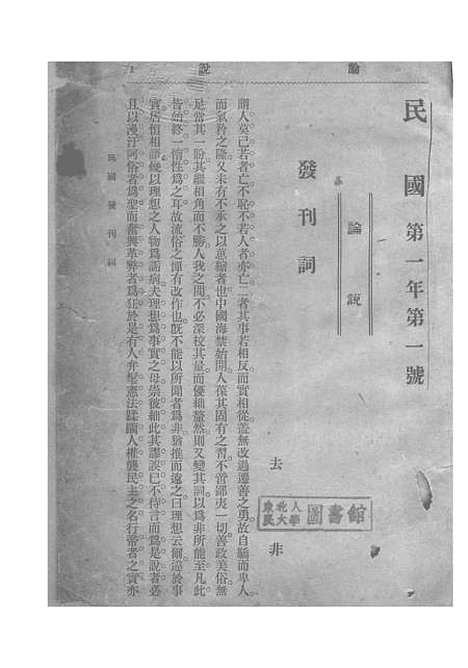 論說 1
民國 第一年第一號
論說
發刊詞
去非
謂人莫己若者亡不恥不若人者亦亡二者其事若相反而實相從蓋無改過遷善之勇故自驕而卑人
而氣矜之隆又未有不承之以萎縮者也中國海禁始開人葆其固有之習不啻鄙夷一切善政美俗無
足當其一盼其繼相角而不勝人我之間不必深校其量而優絀釐然則又變其詞以爲非所能至凡此
皆始終一惰性爲之耳故流俗之憚有改作也旣不能以所聞者爲非猶推而遠之曰理想云爾遠於事
實所恒相謗慢以理想之人物爲詬病夫理想爲事實之母崇彼絀此其謬誤已不待言而爲是說者必
且以漫汙阿俗者爲聖而奮興革弊者爲狂於是有人弁髦憲法蹂躪人權襲民主之名行帝者之實亦
民國發刊詞
東北人民大學圖書館